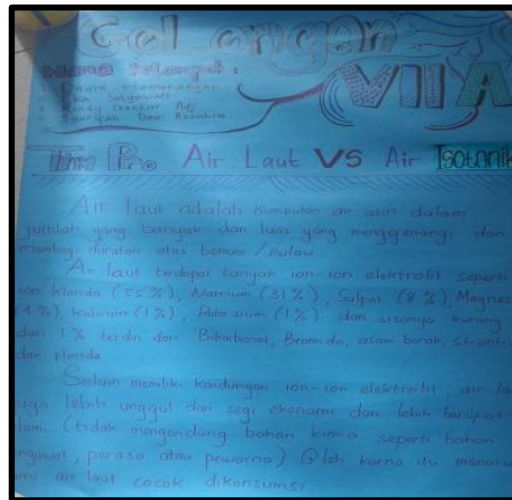 Golongan
VII A
Nama Kelompok :
Tim Pro Air Laut VS Air Isotonik
Air laut adalah kumpulan air asin dalam
jumlah yang banyak dan luas yang menggenangi dan
membagi daratan atas benua / pulau
Air laut terdapat banyak ion-ion elektrolit seperti
ion klorida (55%), Natrium (31%), Sulpat (8%), Magnes
(4%), kalsium (1%), Potasium (1%) dan sisanya kurang
dari 1% terdiri dari Bikarbonat, Bromida, asam borak, Stronti
dan florida.
Selain memilik kandungan ion-ion elektrolit, air la
juga lebih unggul dari segi ekonomi dan lebih bersipat
alami (tidak mengandung bahan kimia seperti bahan
ngawet, perasa atau pewarna) Oleh karna itu menuru
air laut cocok dikonsumsi